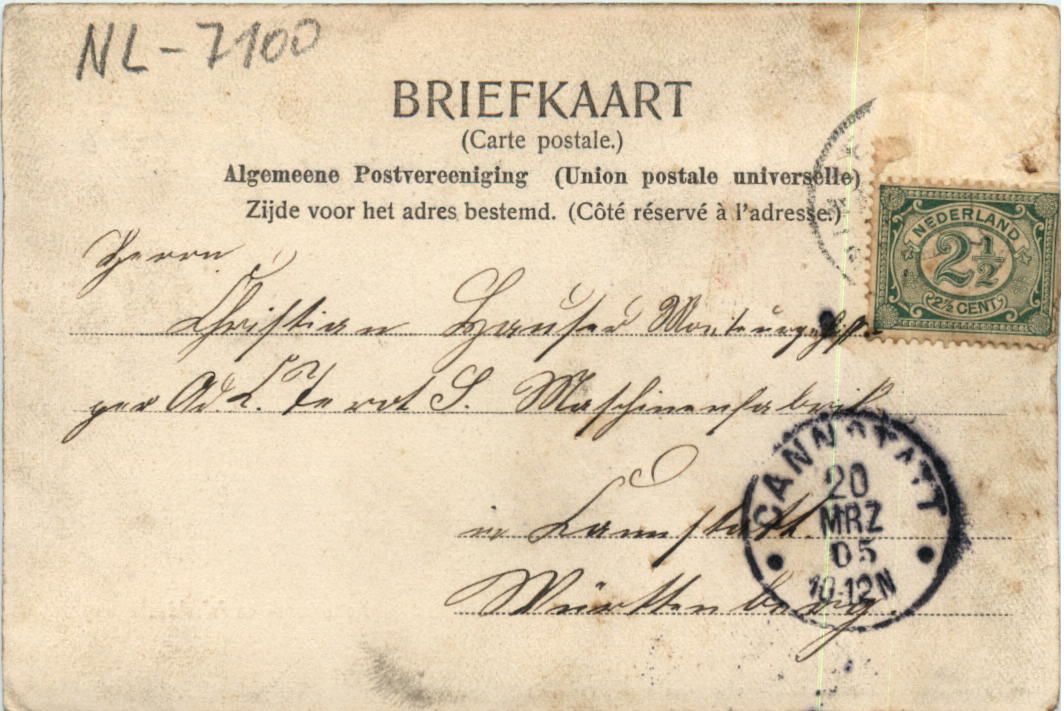 NL-7100
BRIEFKAART
(Carte postale.)
Algemeene Postvereeniging (Union postale universelle)
Zijde voor het adres bestemd. (Côté réservé à l'adresse.)
NEDERLAND
2½
2½ CENT
Herrn
Christian Hauser
per Ad. Terrot S. Maschinenfabrik
in Cannstatt.
Württemberg.
CANNSTATT
20
MRZ
05
10-12N